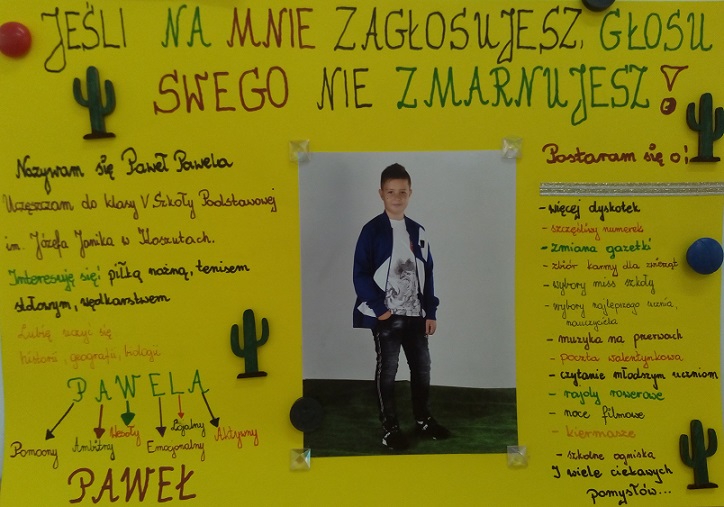 JEŚLI NA MNIE ZAGŁOSUJESZ, GŁOSU
SWEGO NIE ZMARNUJESZ!
Nazywam się Paweł Pawela
Uczęszczam do klasy V Szkoły Podstawowej
im. Józefa Jamika w Koszutach.
Interesuję się: piłką nożną, tenisem
stołowym, wędkarstwem
Lubię uczyć się
historii, geografii, biologii
PAWELA
Pomocny
Ambitny
Wesoły
Emocjonalny
Lojalny
Aktywny
PAWEŁ
Postaram się o:
- więcej dyskotek
- szczęśliwy numerek
- zmiana gazetki
- zbiór karmy dla zwierząt
- wybory miss szkoły
- wybory najlepszego ucznia,
nauczyciela
- muzyka na przerwach
- poczta walentynkowa
- czytanie młodszym uczniom
- rajdy rowerowe
- noce filmowe
- kiermasze
- szkolne ogniska
I wiele ciekawych
pomysłów...